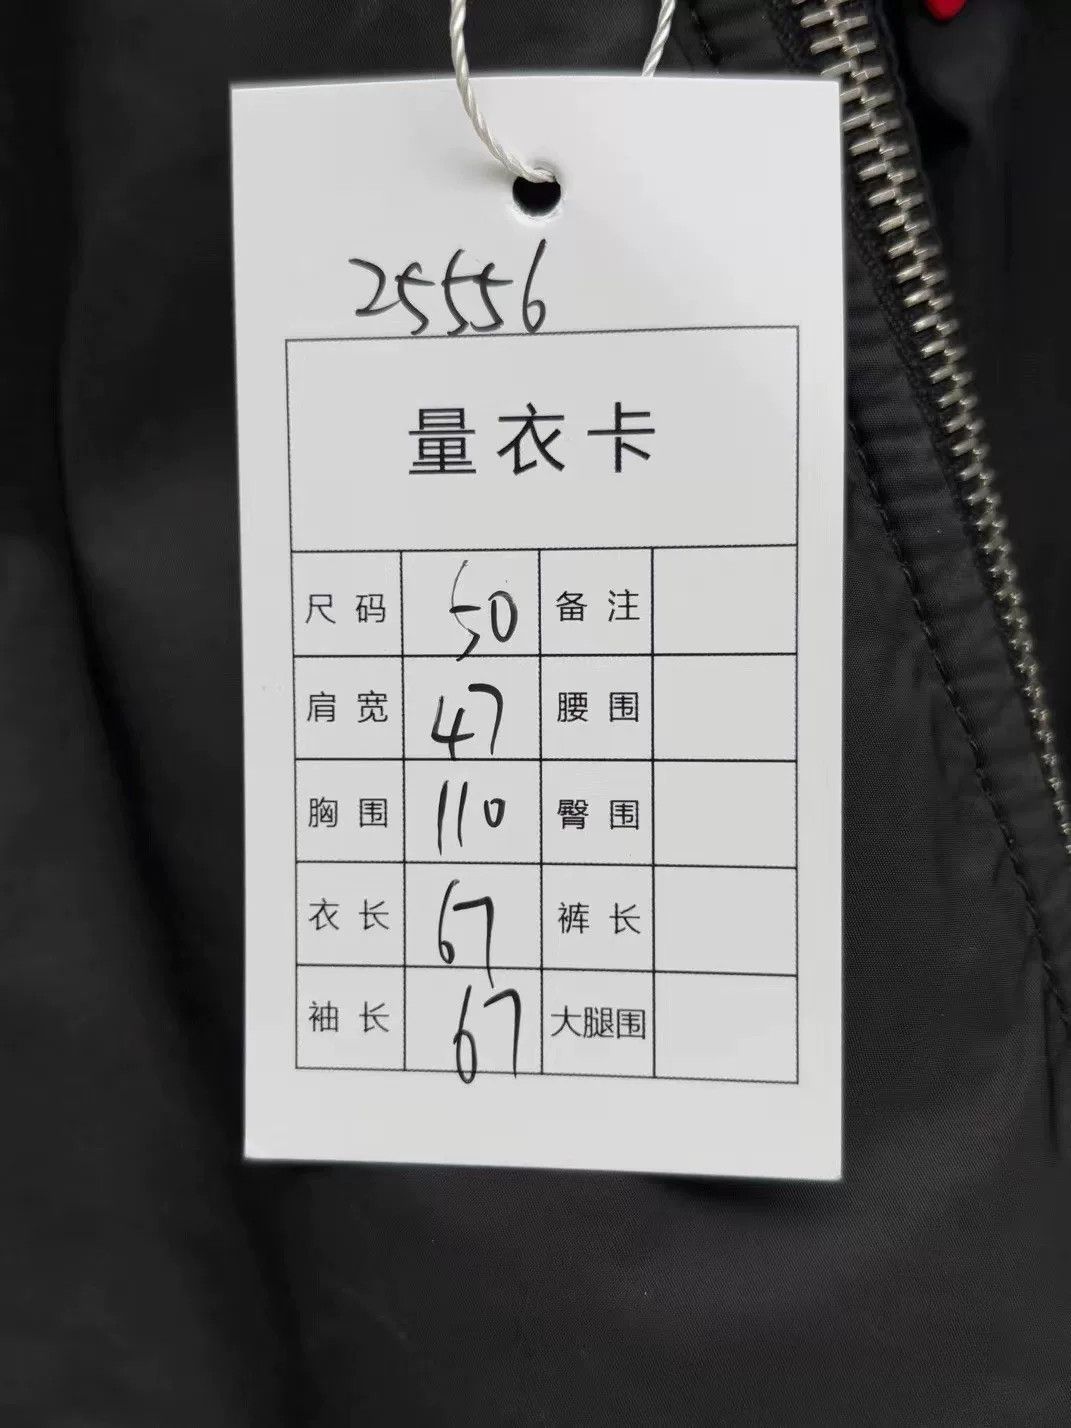 25556
量衣卡
尺码 50 备注
肩宽 47 腰围
胸围 110 臀围
衣长 67 裤长
袖长 67 大腿围